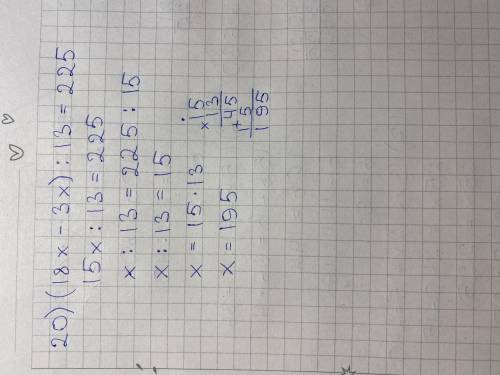 20) (18x - 3x) : 13 = 225
15x : 13 = 225
x : 13 = 225 : 15
x : 13 = 15
x = 15 · 13
x = 195
15
× 13
45
+ 15
195